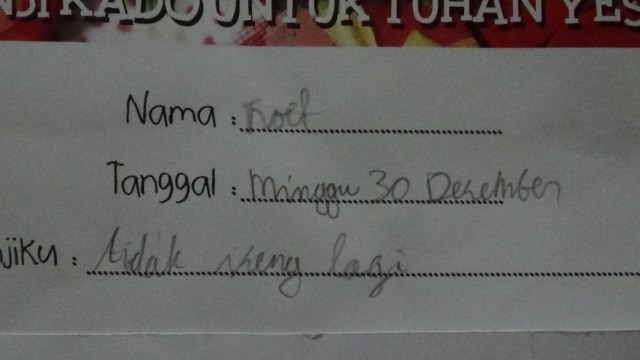 NJI KADO UNTUK TUHAN YES
Nama :
Tanggal : Minggu 30 Desember
jiku : tidak lagi